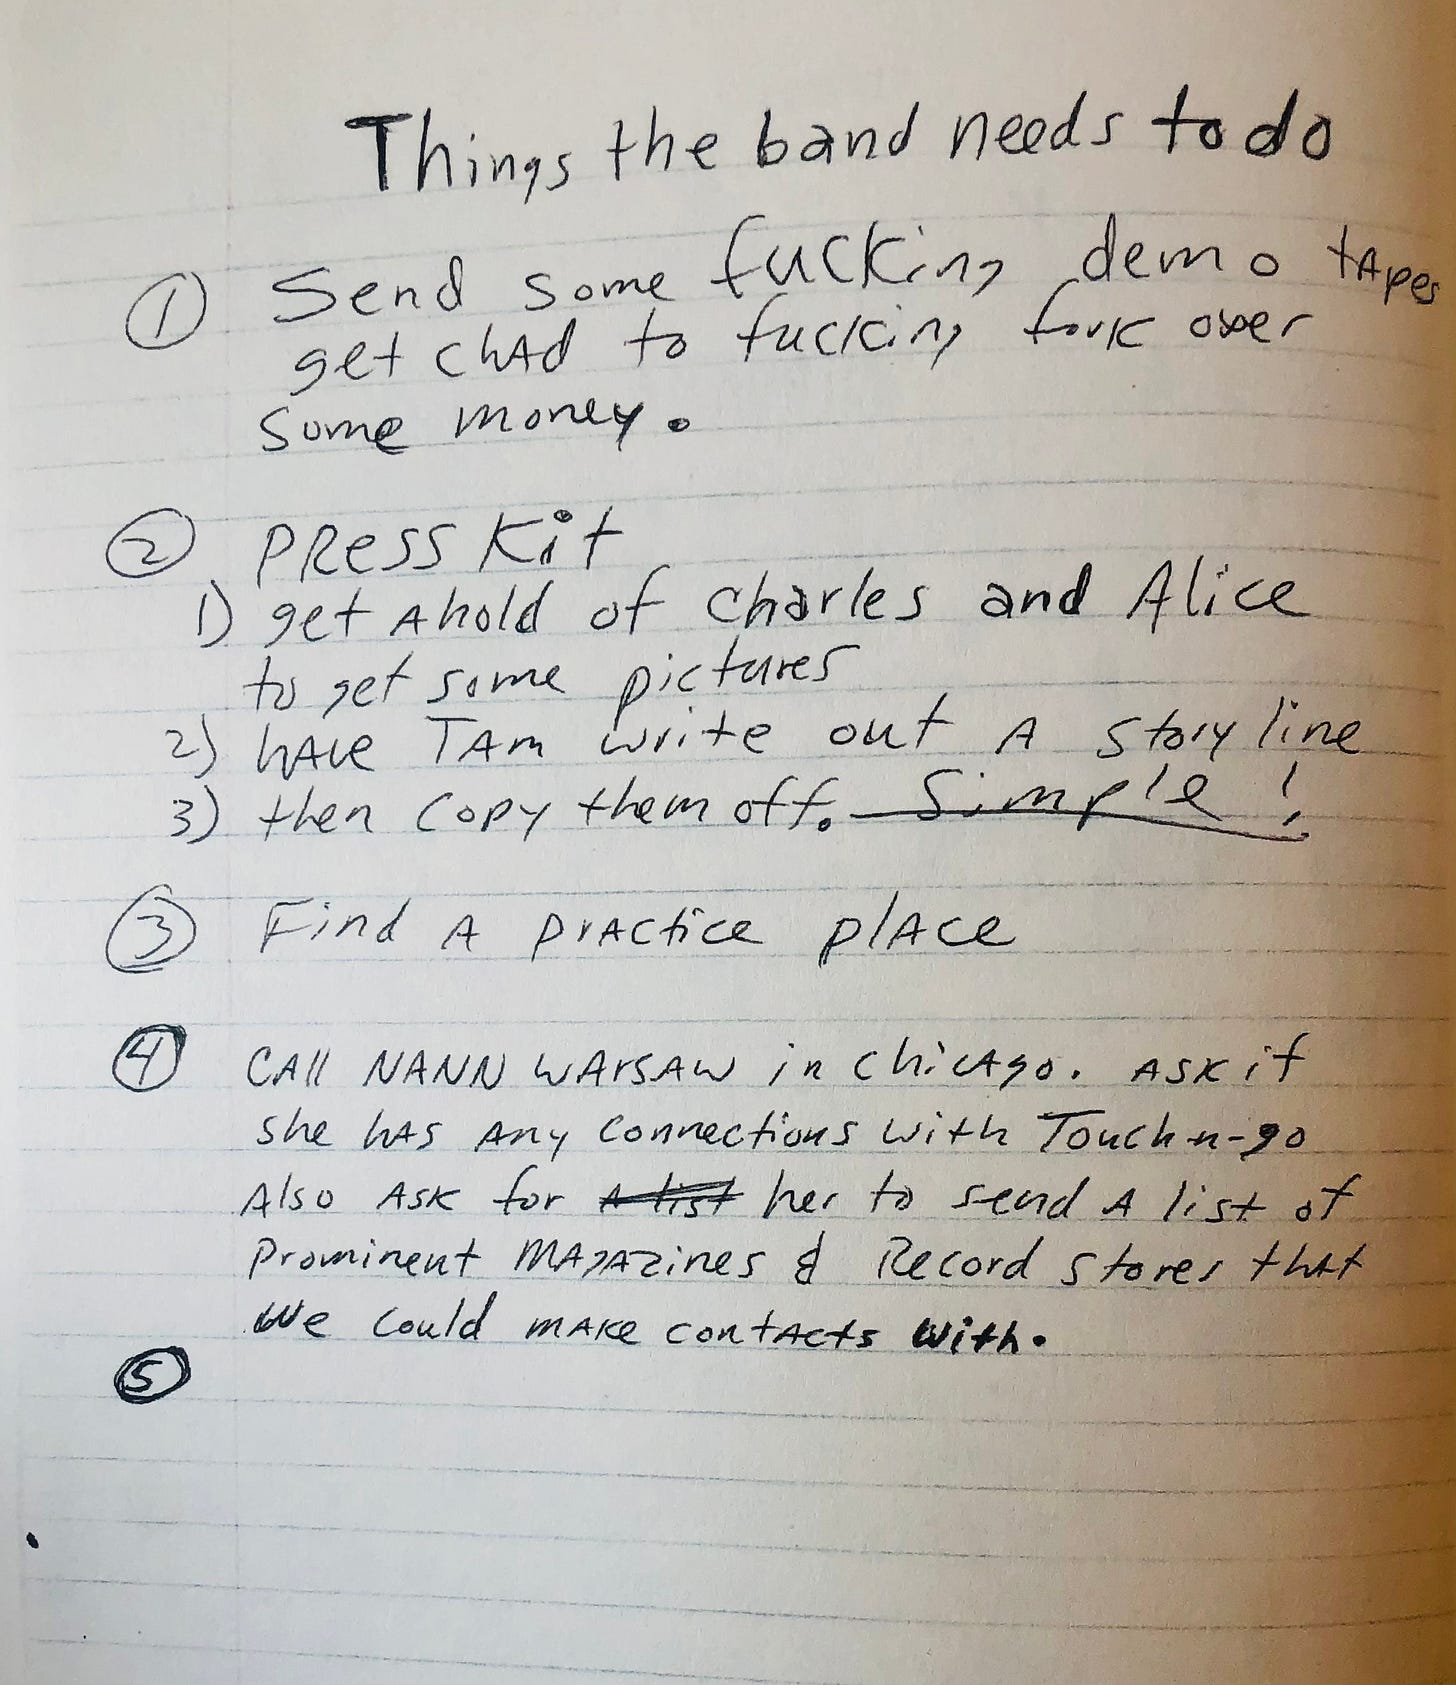 Things the band needs to do
① Send some fucking demo tApes
get chAd to fucking fork over
some money.
② PRess Kit
1) get Ahold of Charles and Alice
to get some pictures
2) hAve TAm write out A story line
3) then copy them off. Simple!
③ Find A prActice plAce
④ CAll NANN WArsAW in ChicAgo. Ask if
she hAs Any Connections with Touch-n-go
Also Ask for A list her to send A list of
Prominent MAgAzines & Record stores thAt
We could mAke contActs with.
⑤